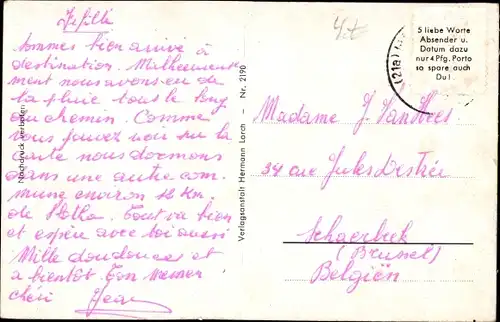 sommes bien arrivé à
destination. Malheureuse-
ment nous avons eu de
la pluie tous le long
du chemin. Comme
vous pouvez voir sur la
carte nous dormons
dans une autre com.
mune environ 12 Km.
de Tout va bien
et espère avec toi aussi
Mille doudouces et
a bientôt. Ton
chéri Jean
Nachdruck verboten
Verlagsanstalt Hermann Lorch - Nr. 2190
4.t
(21a)
5 liebe Worte
Absender u.
Datum dazu
nur 4 Pfg. Porto
so spare auch
Du!
Madame J. Van Hees
34 rue Jules Destrée
Schaerbeek
(Brussel)
Belgiën